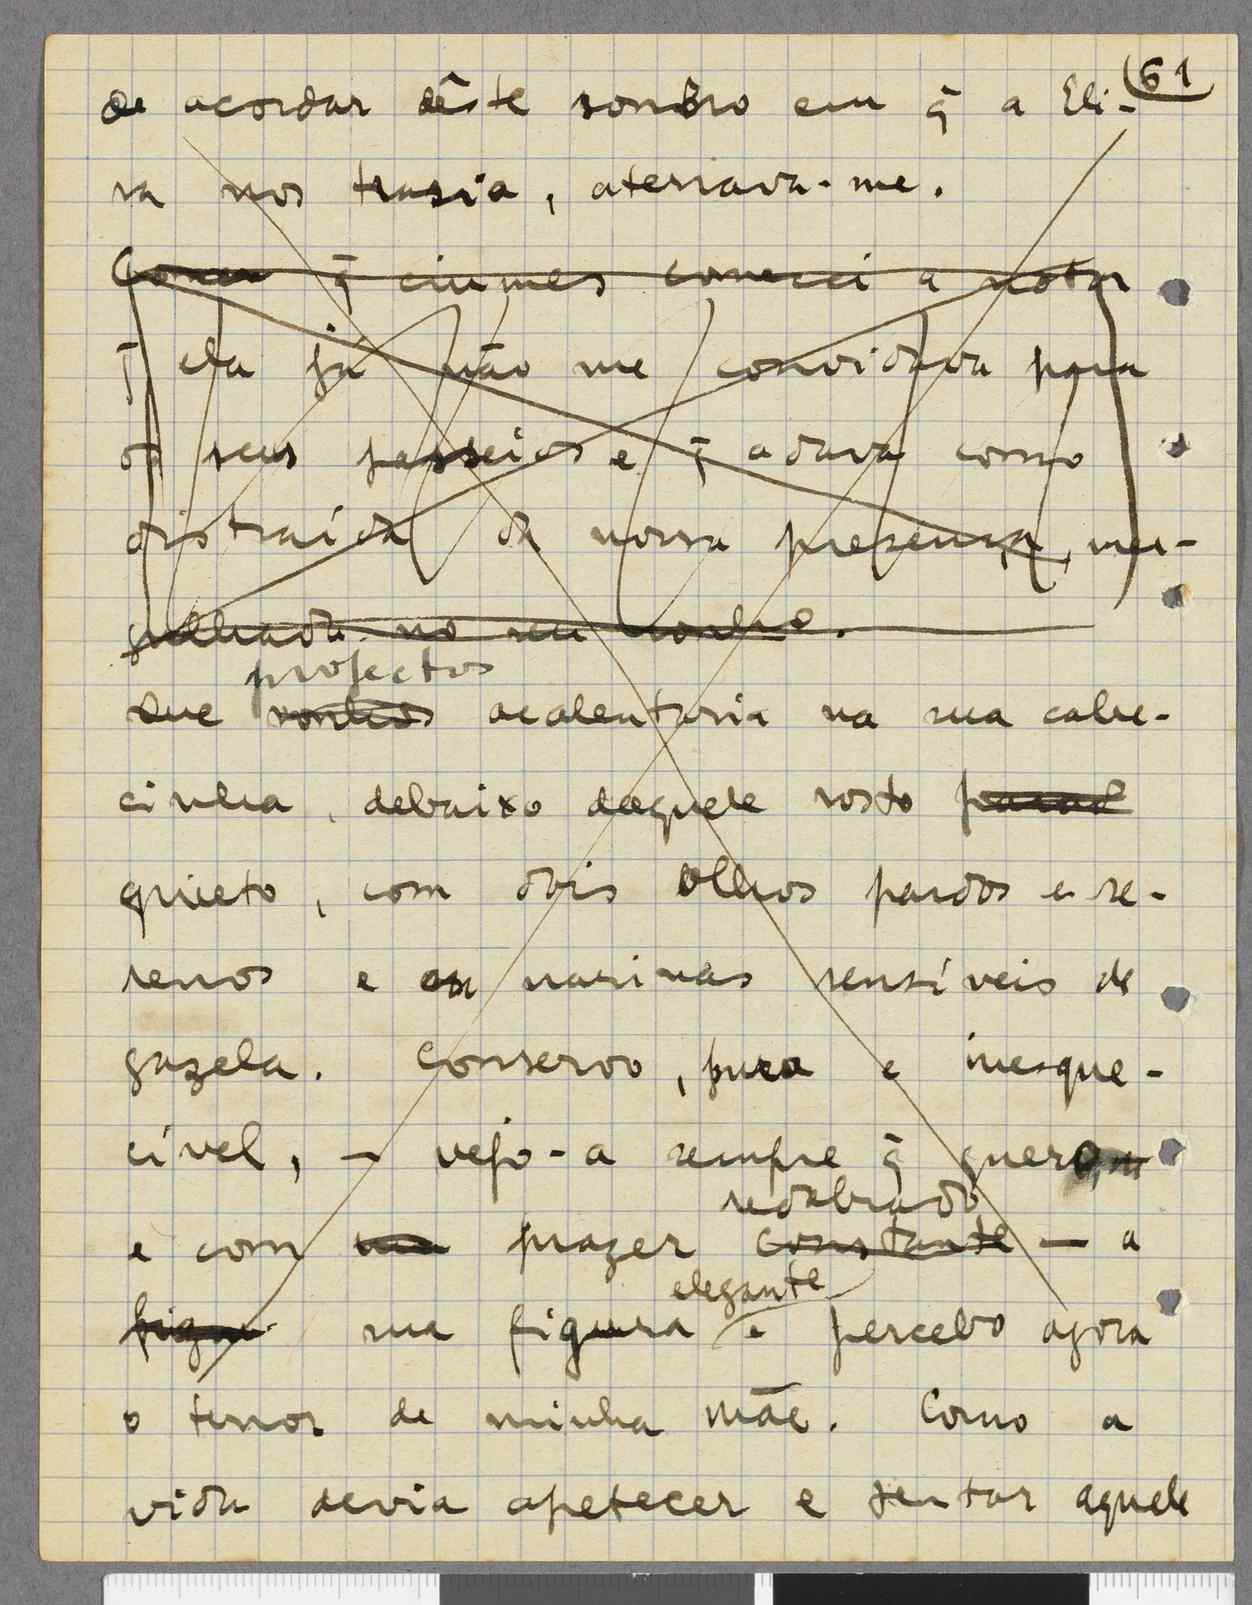 61
de acordar dêste sonho em q̃ a Eli-
sa nos trazia, aterrava-me.
Com q̃ ciumes comecei a notar
q̃ ela já não me convidava para
os seus passeios e q̃ adava como
distraída da nossa presença, mer-
gulhada no seu sonho.
projectos
Que sonhos acalentaria na sua cabe-
cinha, debaixo daquele rosto parado
quieto, com dois olhos pardos e se-
renos e as narinas sensíveis de
gazela. Conservo, pura e inesque-
cível, – vejo-a sempre q̃ quero
redobrado
e com um prazer constante — a
elegante
figu sua figura e percebo agora
o terror de minha mãe. Como a
vida devia apetecer e tentar aquele